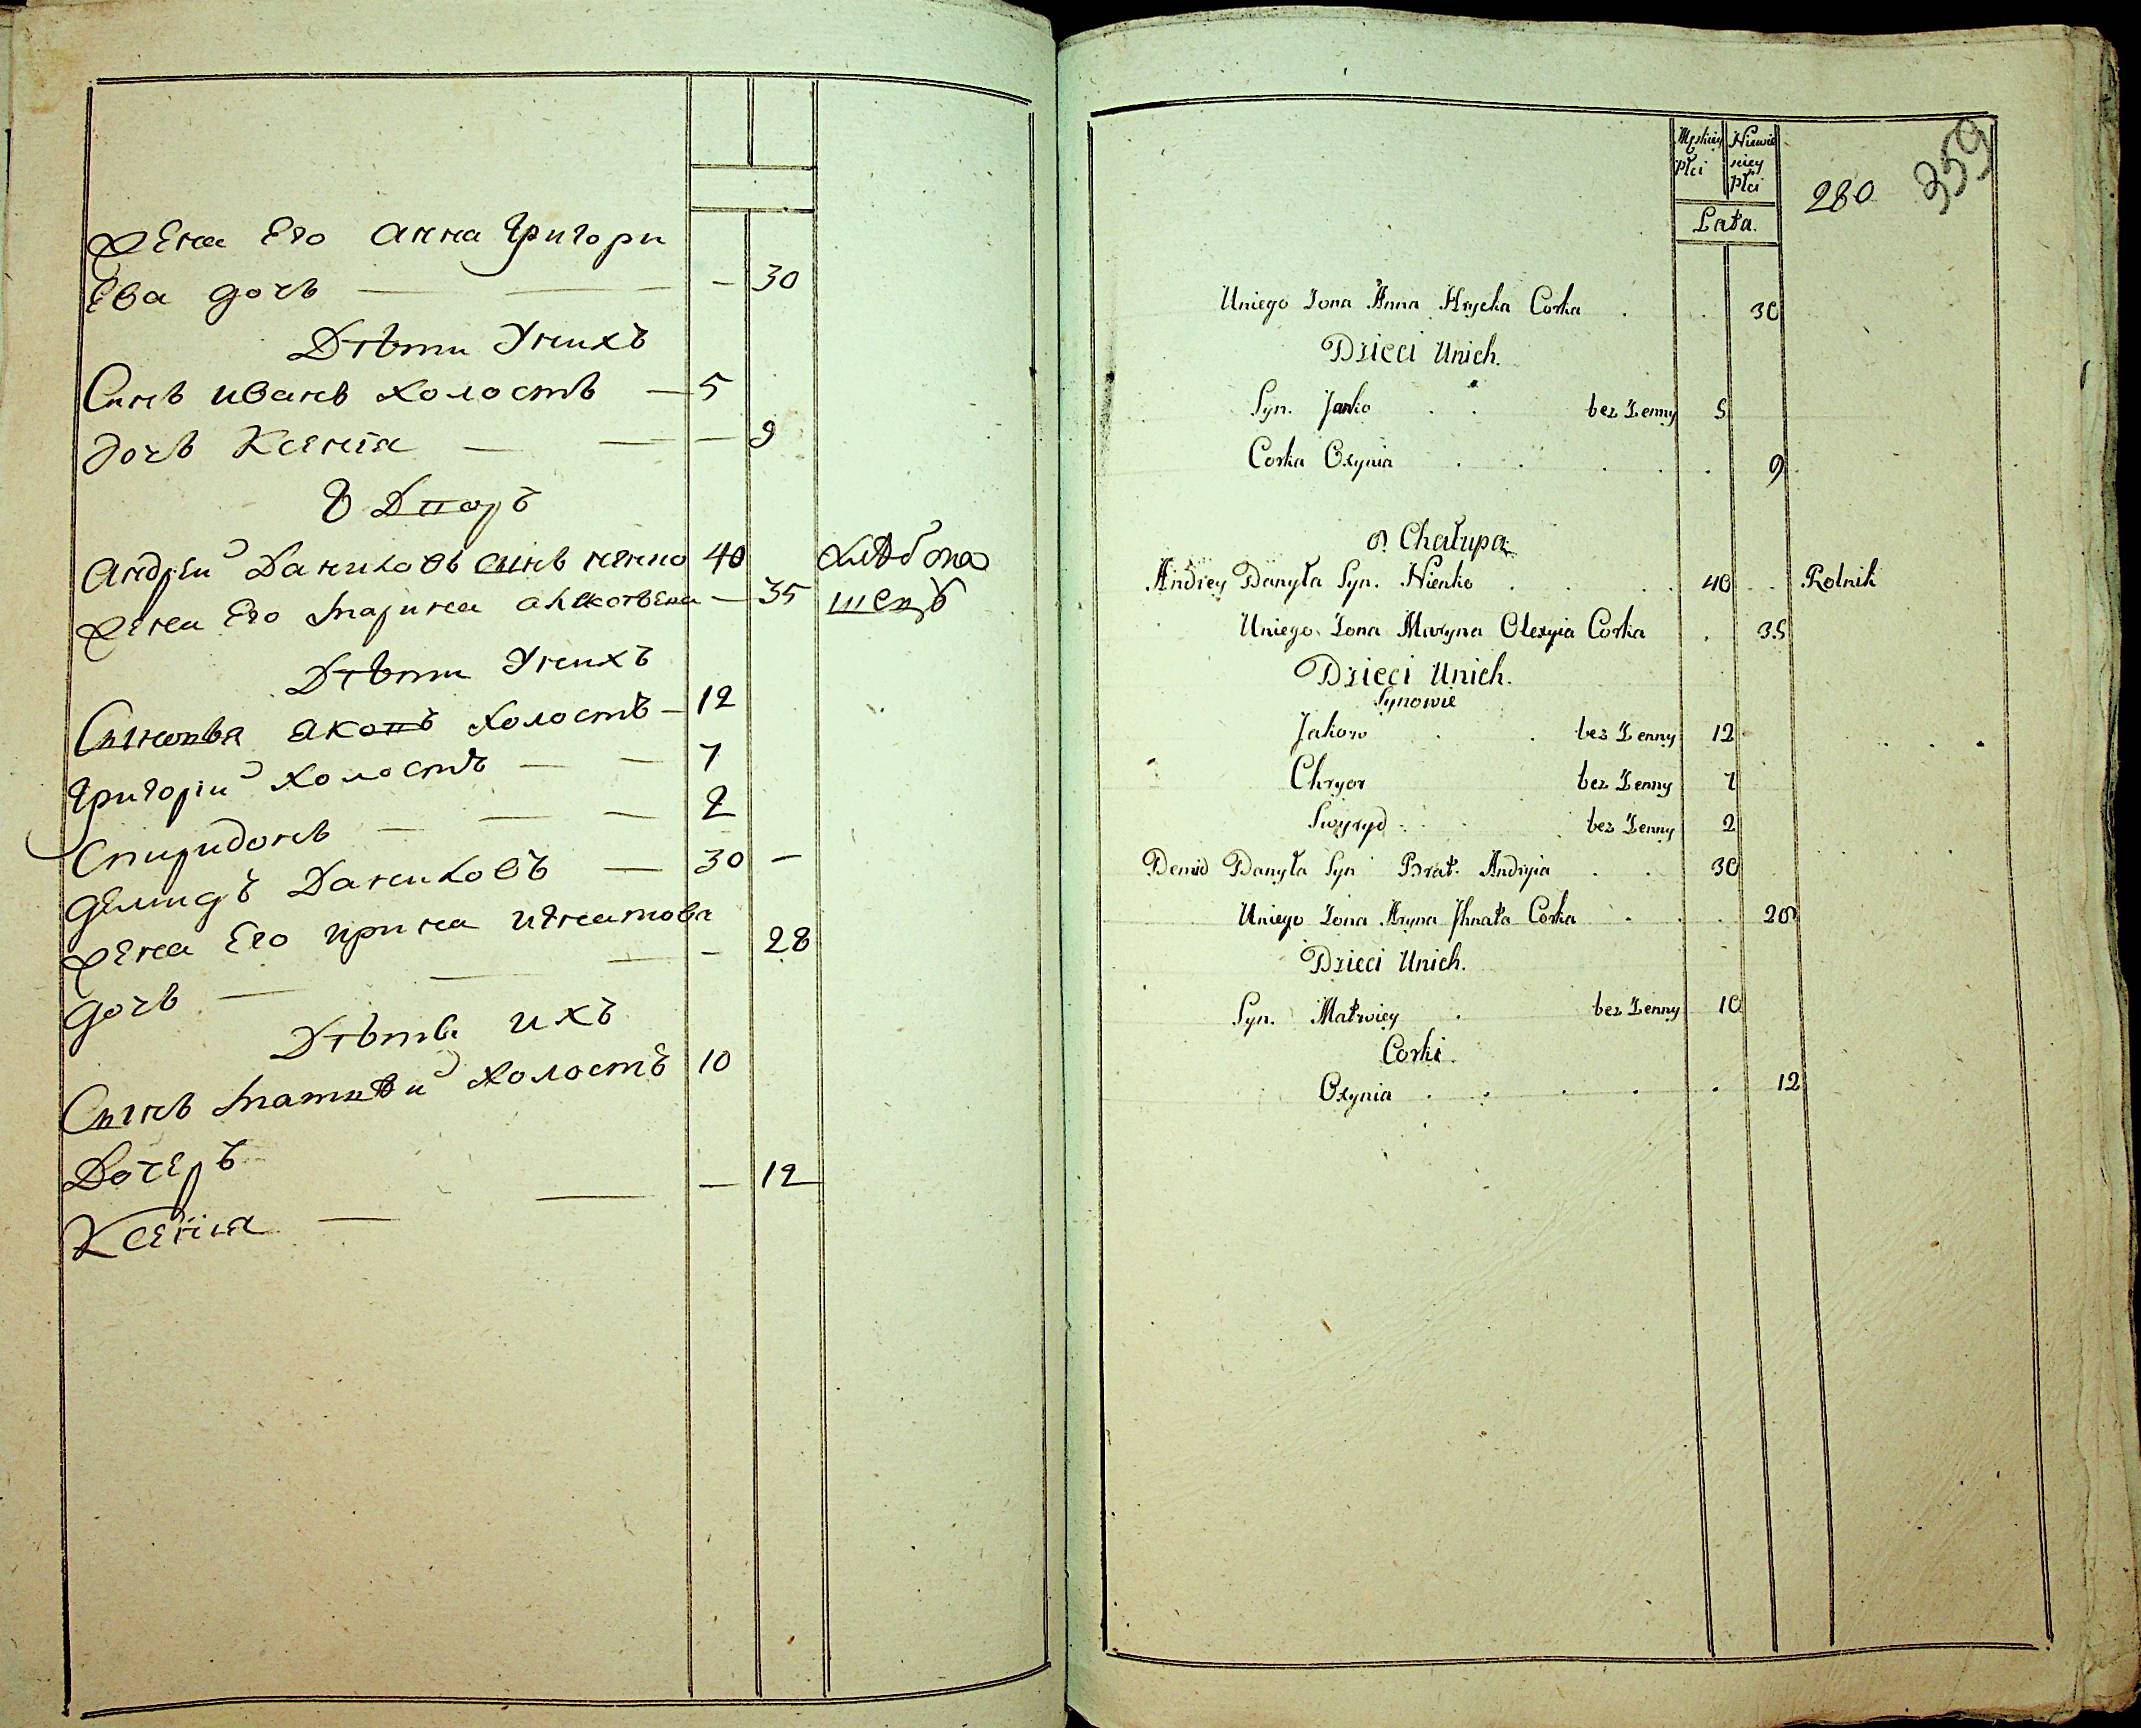 жена Его анна Григори
Ева дочь — — — 30
Дѣти Уних̾ъ
Синъ иванъ холостъ — 5
дочь Ксенія — — — 9
8 Дпоръ
андрѣй Даниловъ синъ 40 хлѣбопа
жена Его марина алексѣева — 35 шецъ
Дѣти Унихъ
Синовья акопъ холостъ — 12
Григорій холостъ — — 7
Спиридонъ — — — 2
демидъ Даниловъ — 30 —
жена Его ирина игнатова
дочь — — — — 28
Дѣти ихъ
Сынъ матвѣй холостъ 10
Дочеръ
Ксенія — — — 12
Męskiey Płci Niewieściey Płci
280 359
Lata.
Uniego Żona Anna Hryćka Corka . . 30
Dzieci Unich.
Syn. Janko . . bez Żenny 5
Corka Oxynia . . . . . 9
8. Chałupa
Andrey Danyła Syn. Nienko . . . 40 . . Rolnik
Uniego Żona Maryna Olexyia Corka . 35
Dzieci Unich.
Synowie
Jakow . . bez Żenny 12
Chryor bez Żenny 7
Swyryd . . . bez Żenny 2
Demid Danyła Syn Brat. Andryia . . 30
Uniego Żona Aryna Jhnata Corka . . . 28
Dzieci Unich.
Syn. Matwiey . bez Żenny 10
Corki.
Oxynia . . . . . 12